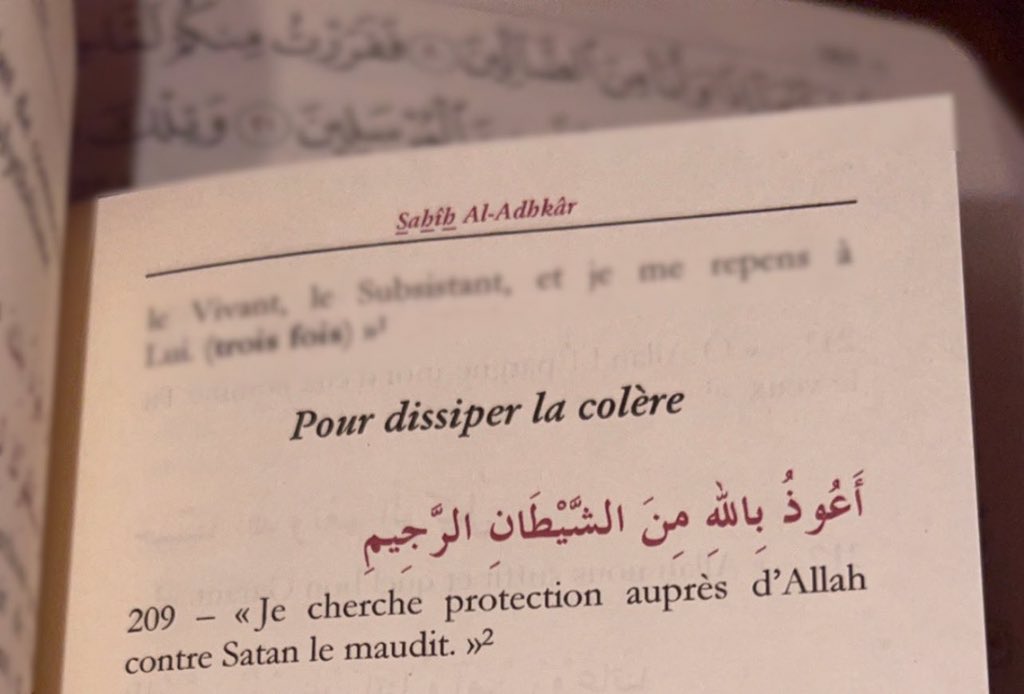 فَفَرَرْتُ مِنكُمْ لَمَّا
الْمُرْسَلِينَ
Sahîh Al-Adhkâr
le Vivant, le Subsistant, et je me repens à
Lui. (trois fois) »¹
Pour dissiper la colère
أَعُوذُ بِاللهِ مِنَ الشَّيْطَانِ الرَّجِيمِ
209 – « Je cherche protection auprès d’Allah
contre Satan le maudit. »²